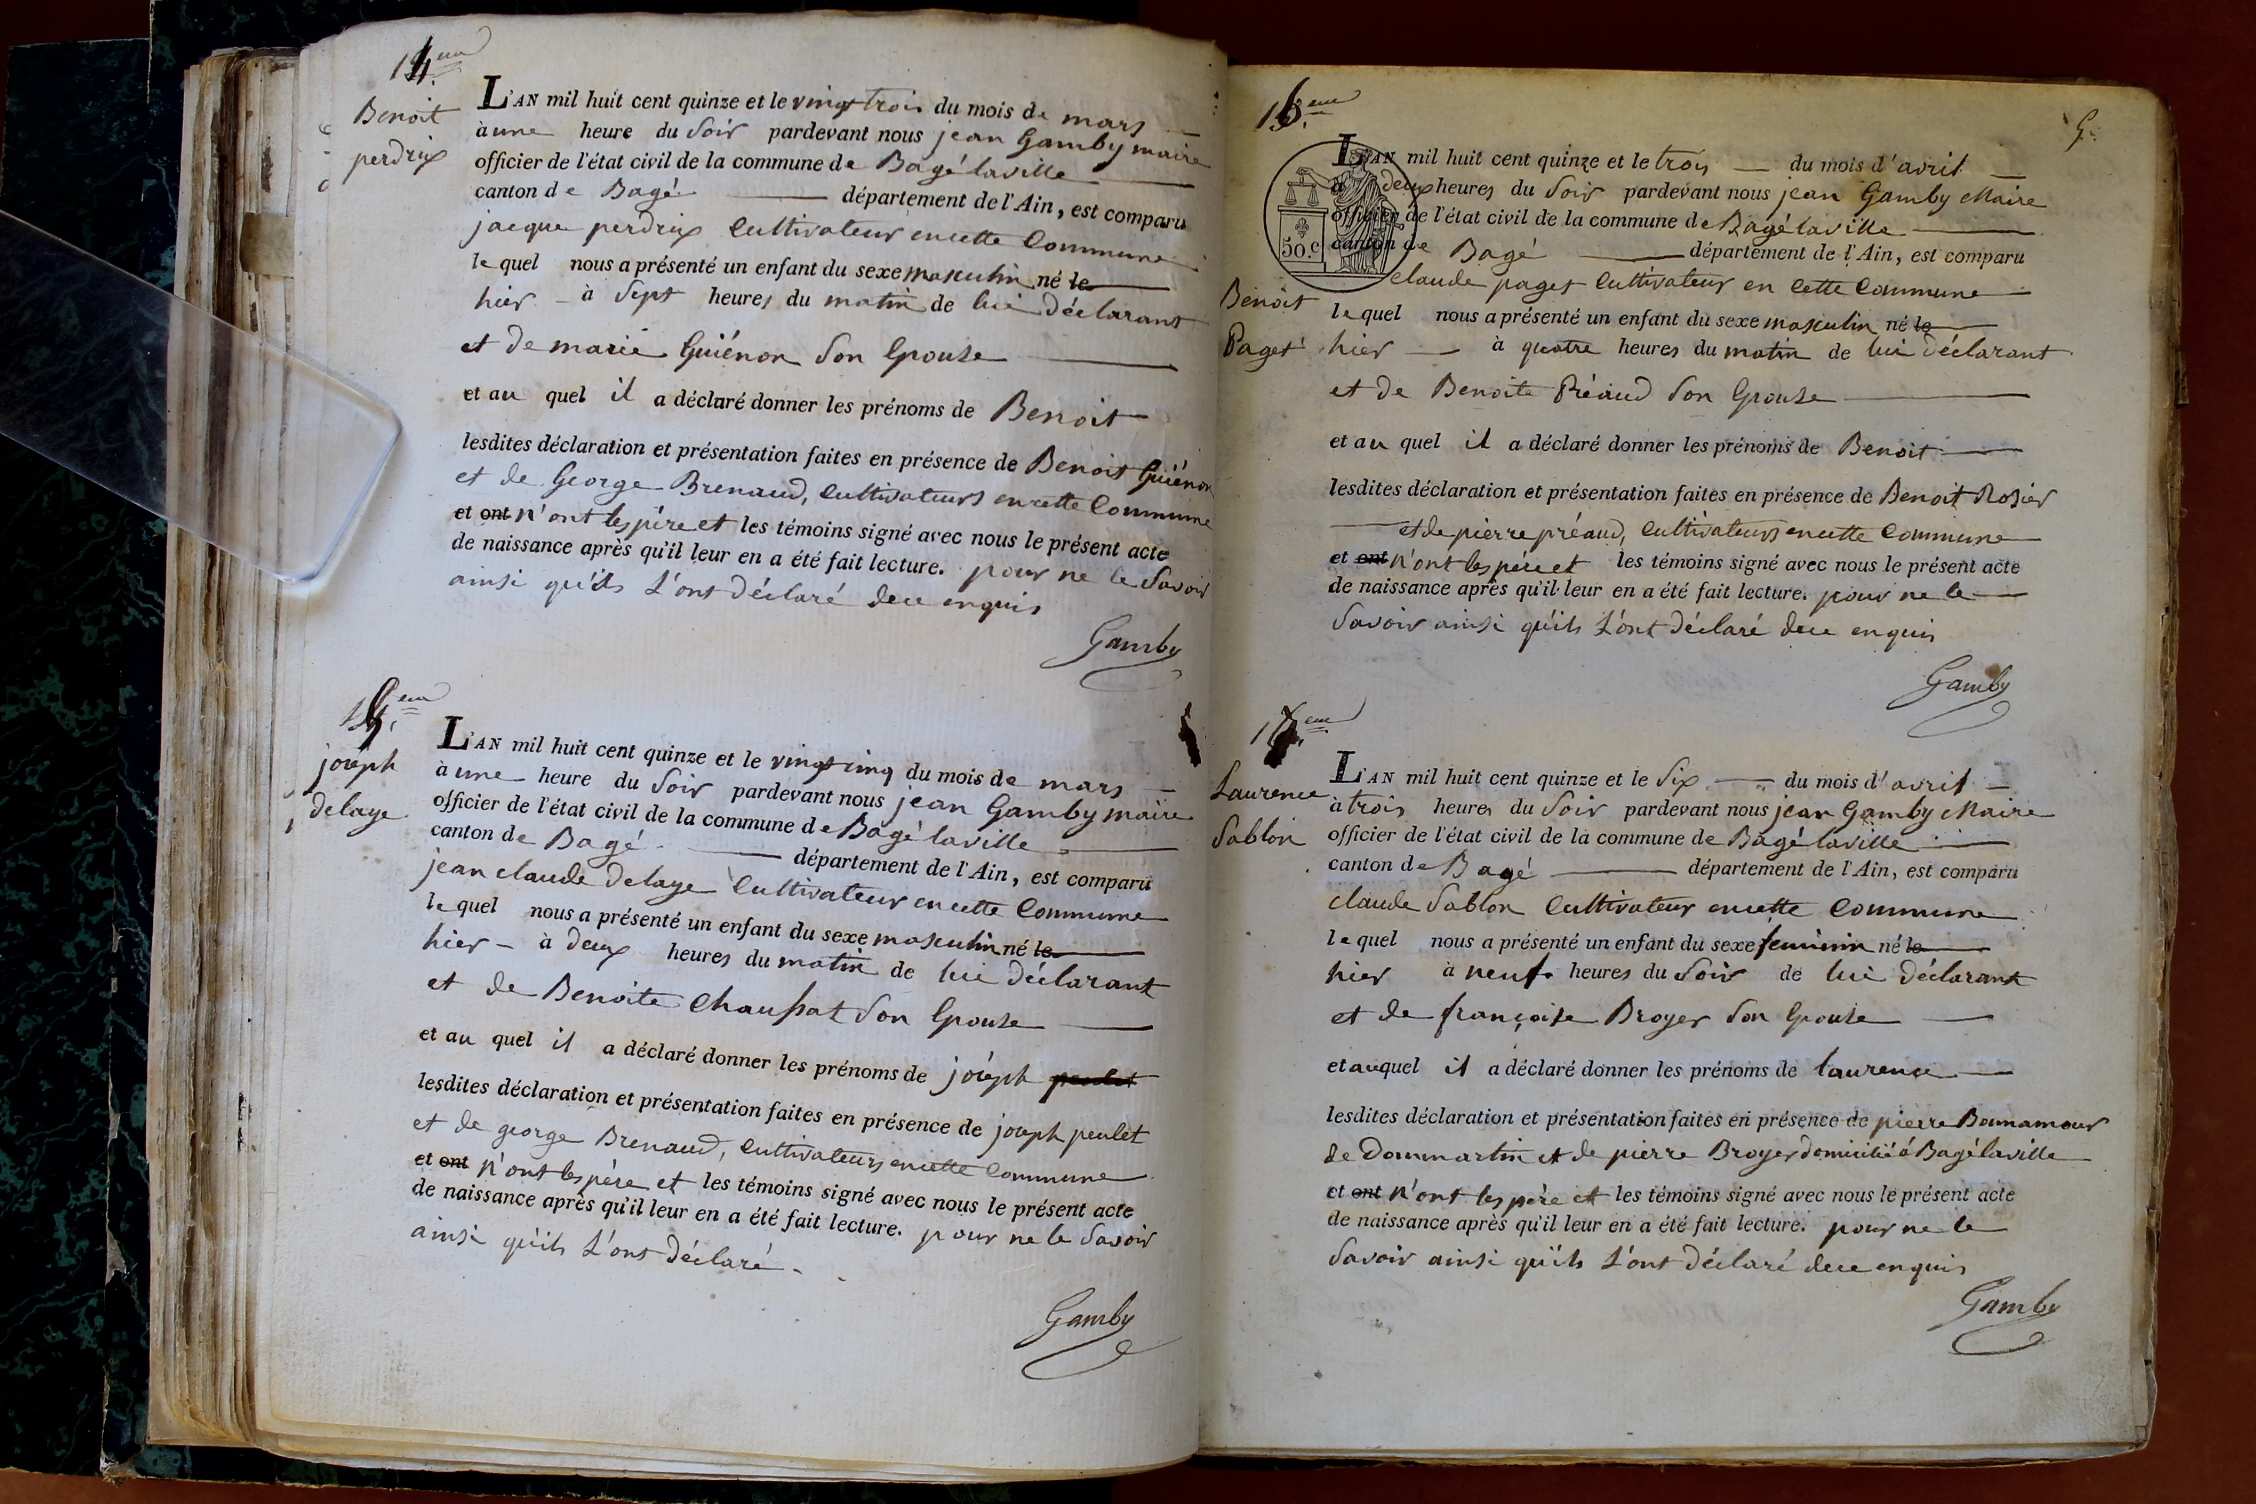 14.eme
Benoit
perdrix
L'AN mil huit cent quinze et le vingt trois du mois de mars
à une heure du soir pardevant nous jean Gamby maire
officier de l'état civil de la commune de Bagé laville
canton de Bagé département de l'Ain, est comparu
jacque perdrix Cultivateur en cette Commune
le quel nous a présenté un enfant du sexe masculin né le
hier à sept heures du matin de lui déclarant
et de marie Guiénon son Epouse
et au quel il a déclaré donner les prénoms de Benoit
lesdites déclaration et présentation faites en présence de Benoit Guiénon
et de George Brenaud, Cultivateurs en cette Commune
et ont n'ont les père et les témoins signé avec nous le présent acte
de naissance après qu'il leur en a été fait lecture. pour ne le savoir
ainsi qu'ils L'ont déclaré dece enquis
Gamby
15.eme
joseph
delaye
L'AN mil huit cent quinze et le vingt cinq du mois de mars
à une heure du soir pardevant nous jean Gamby maire
officier de l'état civil de la commune de Bagé laville
canton de Bagé département de l'Ain, est comparu
jean claude delaye Cultivateur en cette Commune
le quel nous a présenté un enfant du sexe masculin né le
hier à deux heures du matin de lui déclarant
et de Benoite Chaussat son Epouse
et au quel il a déclaré donner les prénoms de joseph
lesdites déclaration et présentation faites en présence de joseph peulet
et de george Brenaud, Cultivateurs en cette Commune
et ont n'ont les père et les témoins signé avec nous le présent acte
de naissance après qu'il leur en a été fait lecture. pour ne le savoir
ainsi qu'ils L'ont déclaré
Gamby
16.eme
Benoit
Paget
L'AN mil huit cent quinze et le trois du mois d'avril
à deux heures du soir pardevant nous jean Gamby Maire
officier de l'état civil de la commune de Bagé laville
50.c
canton de Bagé département de l'Ain, est comparu
claude paget Cultivateur en cette Commune
le quel nous a présenté un enfant du sexe masculin né le
hier à quatre heures du matin de lui déclarant
et de Benoite Préaud son Epouse
et au quel il a déclaré donner les prénoms de Benoit
lesdites déclaration et présentation faites en présence de Benoit Rosier
et de pierre préaud, Cultivateurs en cette Commune
et ont n'ont les père et les témoins signé avec nous le présent acte
de naissance après qu'il leur en a été fait lecture. pour ne le
savoir ainsi qu'ils L'ont déclaré dece enquis
Gamby
Laurence
Sablon
L'AN mil huit cent quinze et le six du mois d'avril
à trois heures du soir pardevant nous jean Gamby Maire
officier de l'état civil de la commune de Bagé laville
canton de Bagé département de l'Ain, est comparu
claude Sablon Cultivateur en cette Commune
le quel nous a présenté un enfant du sexe feminin né le
hier à neuf heures du soir de lui déclarant
et de françoise Broyer son Epouse
et auquel il a déclaré donner les prénoms de laurence
lesdites déclaration et présentation faites en présence de pierre Bonnamour
de Dommartin et de pierre Broyer domicilié à Bagé laville
et ont n'ont les père et les témoins signé avec nous le présent acte
de naissance après qu'il leur en a été fait lecture. pour ne le
savoir ainsi qu'ils L'ont déclaré dece enquis
Gamby